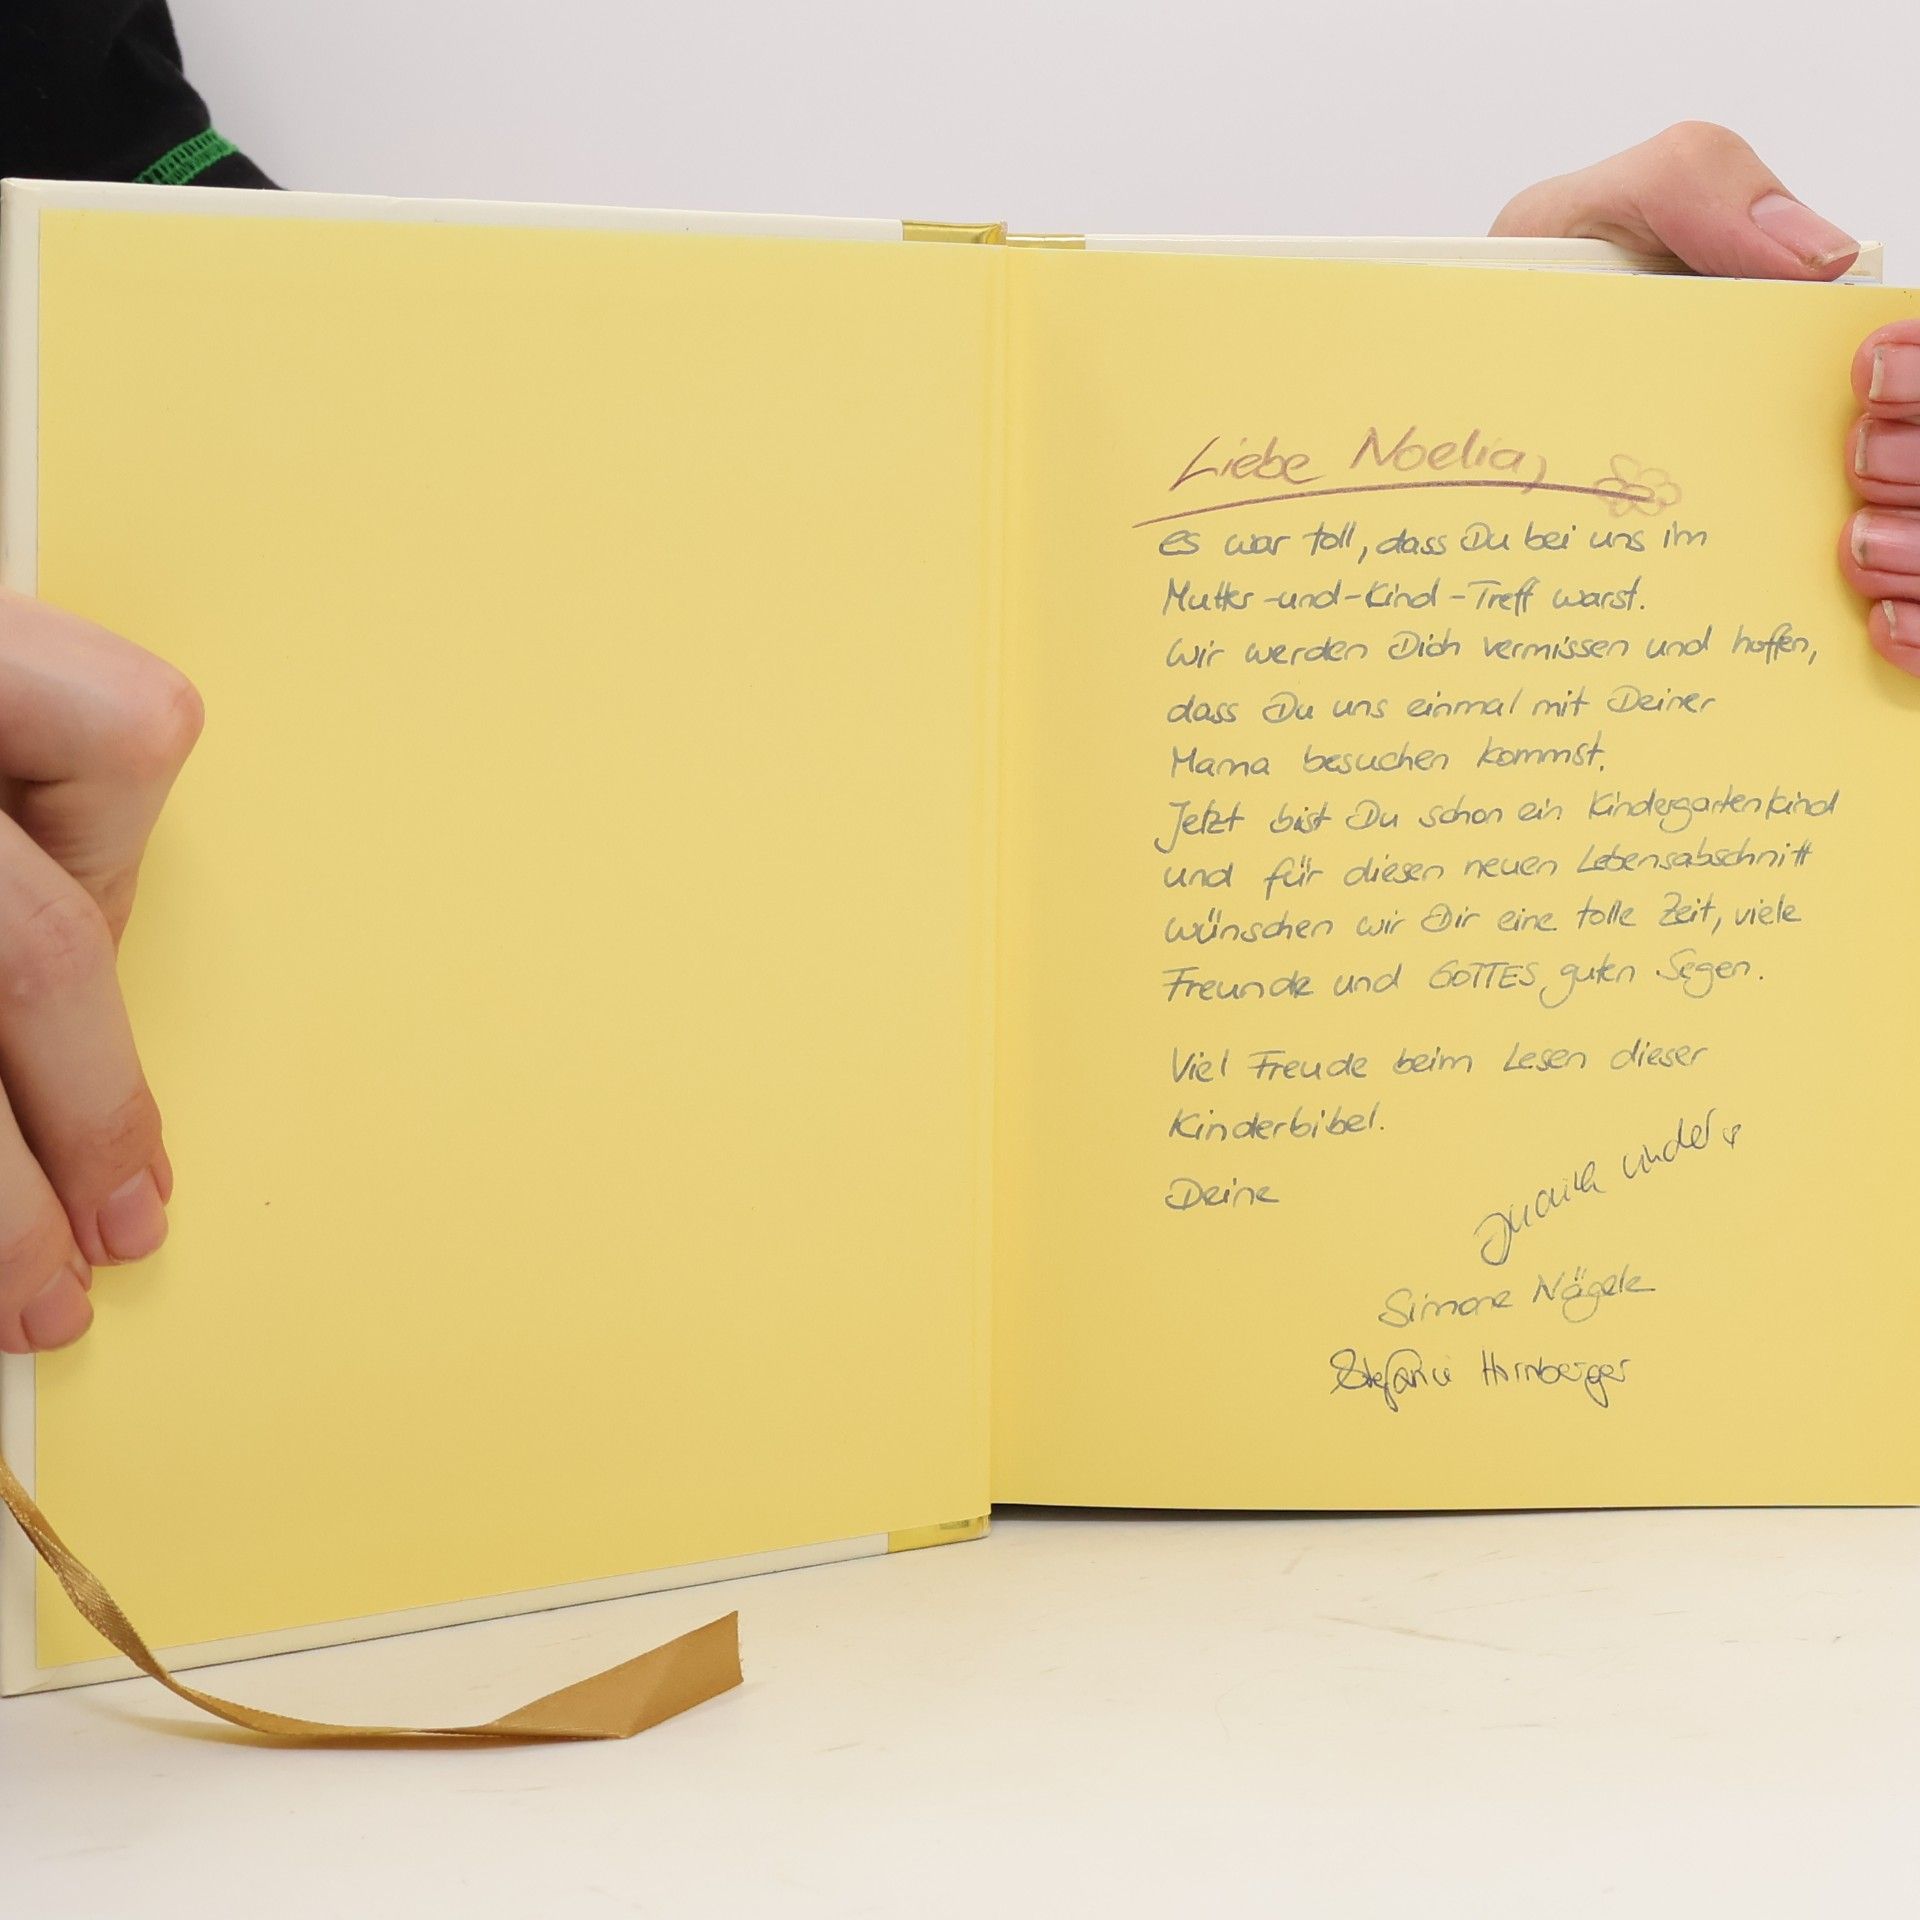 Liebe Noelia,
es war toll, dass Du bei uns im
Mutter-und-Kind-Treff warst.
Wir werden Dich vermissen und hoffen,
dass Du uns einmal mit Deiner
Mama besuchen kommst.
Jetzt bist Du schon ein Kindergartenkind
und für diesen neuen Lebensabschnitt
wünschen wir Dir eine tolle Zeit, viele
Freunde und GOTTES guten Segen.
Viel Freude beim Lesen dieser
Kinderbibel.
Deine
Simone Nägele
Stefanie Hornberger